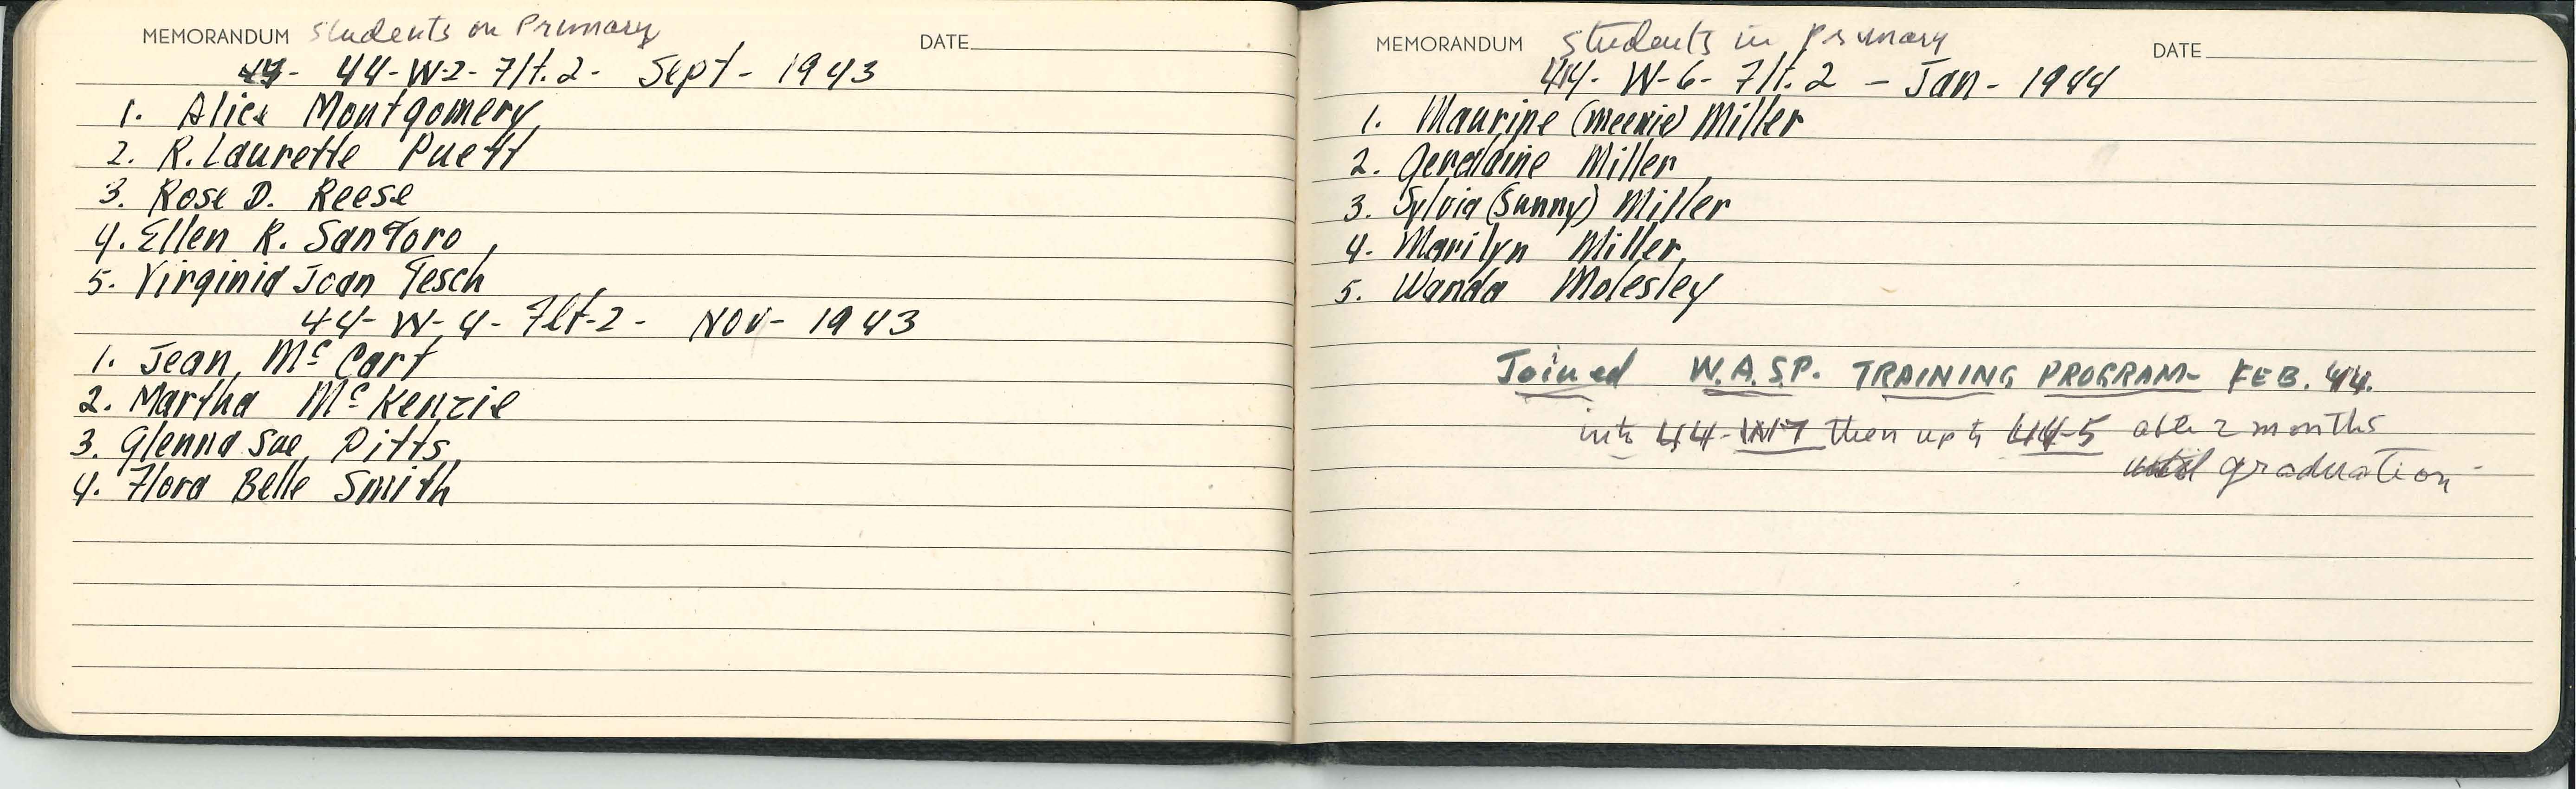 MEMORANDUM Students on Primary DATE
44- 44-W-2- Flt. 2- Sept- 1943
1. Alice Montgomery
2. R. Laurette Puett
3. Rose D. Reese
4. Ellen R. Santoro
5. Virginia Joan Tesch
44- W- 4- Flt-2- Nov- 1943
1. Jean McCart
2. Martha McKenzie
3. Glenna Sue Pitts
4. Flora Belle Smith
MEMORANDUM Students in primary DATE
44- W-6- Flt. 2 - Jan- 1944
1. Maurine (Meenie) Miller
2. Geraldine Miller
3. Sylvia (Sunny) Miller
4. Marilyn Miller
5. Wanda Molesley
Joined W.A.S.P. TRAINING PROGRAM- FEB. 44.
into 44-W-7 then up to 44-5 after 2 months
until graduation-